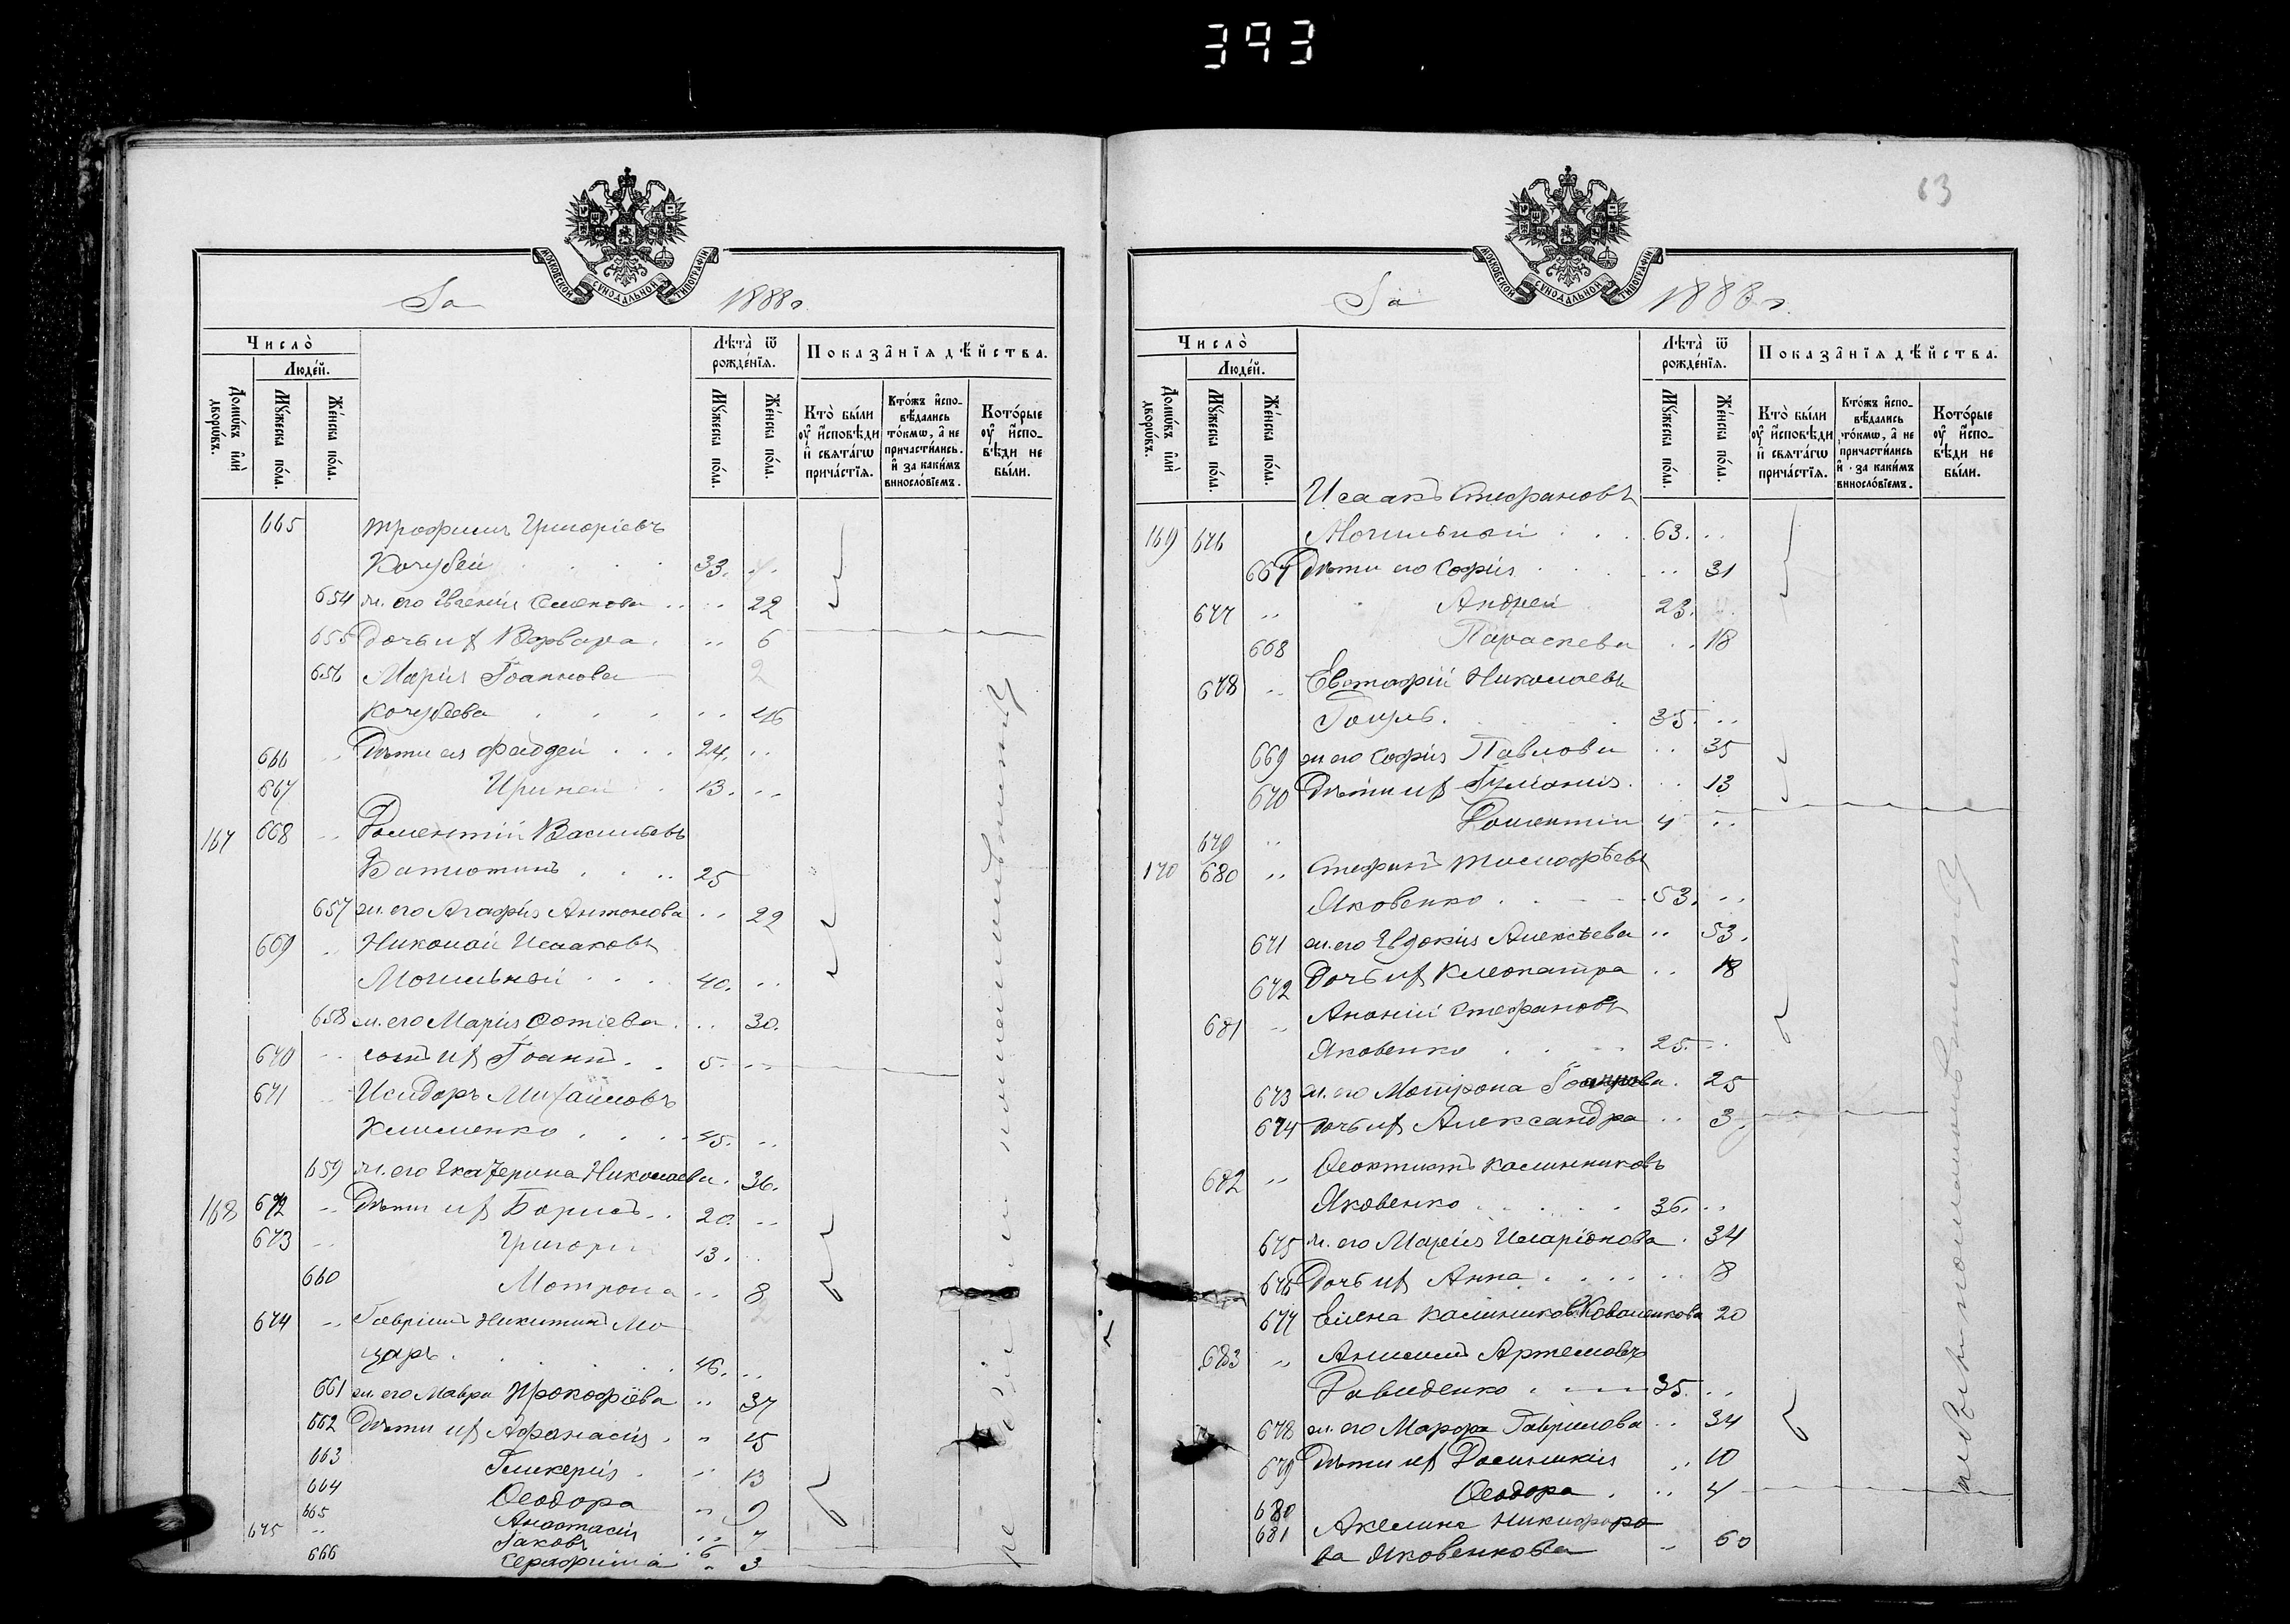 393
МОСКОВСКОЙ СѴНОДАЛЬНОЙ ТИПОГРАФІИ
За 1888 г.
Число̀
Людей.
Домѡ́въ и҆лѝ дворѡ́въ.
Мꙋ́жеска по́ла.
Же́нска по́ла.
Лѣ́та ѿ рожде́нїѧ.
Мꙋ́жеска по́ла.
Же́нска по́ла.
Показа̂нїѧ дѣ́йства.
Кто̀ бы́ли оу҆ и҆сповѣди и҆ свѧта́гѡ прича́стїѧ.
Кто́жъ и҆спо-вѣ́дались то́кмѡ, а҆ не причасти́лись. и҆ за каки́мъ винословїемъ.
Кото́рые оу҆ и҆спо-вѣди не бы́ли.
665 Трофимъ Григоріевъ
Кочубей 33.
654 ж. его Евгенія Семенова 22
655 Дочь их Варвара 6
656 Марія Іоаннова
Кочубеева 46
666 Дѣти ея Фаддей 24.
667 Ириней 13.
167 668 Доментій Васильевъ
Батютинъ 25
657 ж. его Агафія Антонова 22
669 Николай Исааковъ
Могильной 40.
658 ж. его Марія Фотіева 30.
670 сынъ их Іоаннъ 5.
671 Исидоръ Михаиловъ
Клименко 45.
659 ж. его Екатерина Николаева 36.
168 672 Дѣти их Борисъ 20.
673 Григорій 13.
660 Мотрона 8
674 Гавріилъ Никитинъ Мо
царь 46.
661 ж. его Мавра Прокофіева 37
662 Дѣти их Афанасія 15
663 Гликерія 13
664 Ѳеодора 9
665 Анастасія 7
675 Іаковъ 6
666 Серафима 3
63
МОСКОВСКОЙ СѴНОДАЛЬНОЙ ТИПОГРАФІИ
За 1888 г.
Число̀
Людей.
Домѡ́въ и҆лѝ дворѡ́въ.
Мꙋ́жеска по́ла.
Же́нска по́ла.
Лѣ́та ѿ рожде́нїѧ.
Мꙋ́жеска по́ла.
Же́нска по́ла.
Показа̂нїѧ дѣ́йства.
Кто̀ бы́ли оу҆ и҆сповѣди и҆ свѧта́гѡ прича́стїѧ.
Кто́жъ и҆спо-вѣ́дались то́кмѡ, а҆ не причасти́лись и҆ за каки́мъ винословїемъ.
Кото́рые оу҆ и҆спо-вѣди не бы́ли.
Исаакъ Стефановъ
169 676 Могильной 63.
667 Дѣти его Софія 31
677 Андрей 23.
668 Параскева 18
678 Евстафій Николаевъ
35.
669 ж. его Софія Павлова 35
670 Дѣти их Іуліанія 13
679 Доментій 4
170 680 Стефанъ Тимофѣевъ
Яковенко 53.
671 ж. его Евдокія Алексѣева 53.
672 Дочь их Клеопатра 18
681 Ананій Стефановъ
Яковенко 25.
673 ж. его Мотрона 25
674 дочь их Александра 3.
682 Ѳеоктистъ Калинниковъ
Яковенко 36.
675 ж. его Марія Иларіонова 34
676 Дочь их Анна 8
677 Елена Калинникова Коваленкова 20
683 Анисимъ Артемовъ
Давиденко 35.
678 ж. его Марфа Гаврилова 34
679 Дѣти их Домникія 10
680 Ѳеодора 4
681 Акелина Никифоро
ва Яковенкова 60